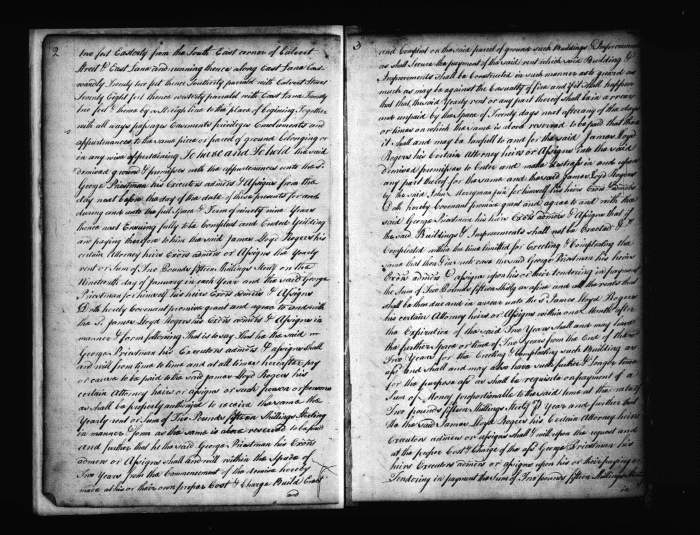 2
two feet Easterly from the South East corner of Calvert
Street & East Lane and running thence along East Lane East-
wardly Twenty two feet thence Southerly parralel with Calvert Street
Seventy Eight feet thence westerly parralel with East Lane Twenty
two feet & thence by a Streigh line to the place of Begining Together
with all ways passages Easements priviledges Emoluments and
appurtenances to the same piece or parcel of ground belonging or
in any wise appertaining To have and To hold the said
demised ground & premisses with the appurtenances unto the Sd.
George Priestman his Executors admrs & Assigns from the
day next before the day of the date of these presents for and
during and unto the full Space & Term of ninety nine Years
thence next Ensuing fully to be Compleat and Ended Yeilding
and paying therefor to him the said James Lloyd Rogers his
certain Attorney heirs Exors admrs or Assigns the Yearly
rent or Sum of Two Pounds fifteen Shillings Sterlg on the
Nineteenth day of January in each Year and the said George
Priestman for himself his heirs Exors admrs & Assigns
Doth hereby Covenant promise grant and agree to and with
the Sd. James Lloyd Rogers his Exors admrs & Assigns in
manner & form following That is to Say That he the said
George Priestman his Executors admrs & assigns shall
and will from time to time and at all times hereafter pay
or cause to be paid to the said James Lloyd Rogers his
certain Attorney heirs or assigns or such person or persons
as shall be properly authorized to receive the same the
Yearly rent or Sum of Two Pounds fifteen Shillings Sterling
in manner & form as the same is above reserved to be paid
and further that he the said George Priestman his Exors
admrs or Assigns shall and will within the Space of
Two Years from the Commencement of the demise hereby
made at his or their own proper Cost & Charge Build Erect
and
3
and Compleat on the said parcel of ground such Buildings & Improvements
as shall Secure the payment of the said rent which said Building &
Improvements Shall be Constructed in such manner as to guard as
much as may be against the Casualty of fire and if it shall happen
that the said Yearly rent or any part thereof shall be in arrear
and unpaid by the Space of Twenty days next after any of the days
or times on which the same is above reserved to be paid that then
it shall and may be lawful to and for the said James Lloyd
Rogers his Certain Attorney heirs or Assigns into the said
demised premisses to Enter and make distress in and upon
any part thereof for the same and the said James Lloyd Rogers
by the said John for himself his heirs Exors & admrs
Doth hereby Covenant promise grant and agree to and with the
said George Priestman his heirs Exors admrs & Assigns that if
the said Buildings & Improvements shall not be Erected &
Compleated within the time limitted for Erecting & Compleating the
same that then & in such case the said George Priestman his heirs
Exors admrs & assigns upon his or their tendering in payment
the Sum of Two Pounds fifteen Shills Sterlg as afsd and all the rents that
shall be then due and in arrear unto the Sd James Lloyd Rogers
his certain Attorney heirs or Assigns within one Month after
the Expiration of the said Two Years shall and may have
the further Space or time of Two Years from the End of the said
Two Years for the Erecting & Compleating such Buildings as
afsd And shall and may also have such further & longer time
for the purpose afsd as shall be requisite on payment of a
Sum of Money proportionable to the said time at the rate of
Two pounds fifteen Shillings Sterlg Pr Year and further that
he the said James Lloyd Rogers his Certain Attorney heirs
Executors admrs or assigns shall & will upon the request and
at the proper Cost & Charge of the afsd George Priestman his
heirs Executors admrs or assigns upon his or their paying or
Tendering in payment the Sum of Two pounds fifteen Shillings